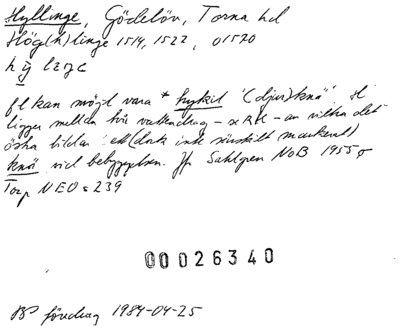 Hyllinge, Gödelöv, Torna hd
Hög(h)linge 1514, 1522, 01570
fl kan möjl vara * hylkil '(djur)knä' H
ligger mellan två vattendrag – av vilka det
östra bildar ett (dock inte särskilt markerat)
knä vid bebyggelsen. Jfr Sahlgren NoB 1955 o
Torp NEO s 239
00026340
föredrag 1984-04-25